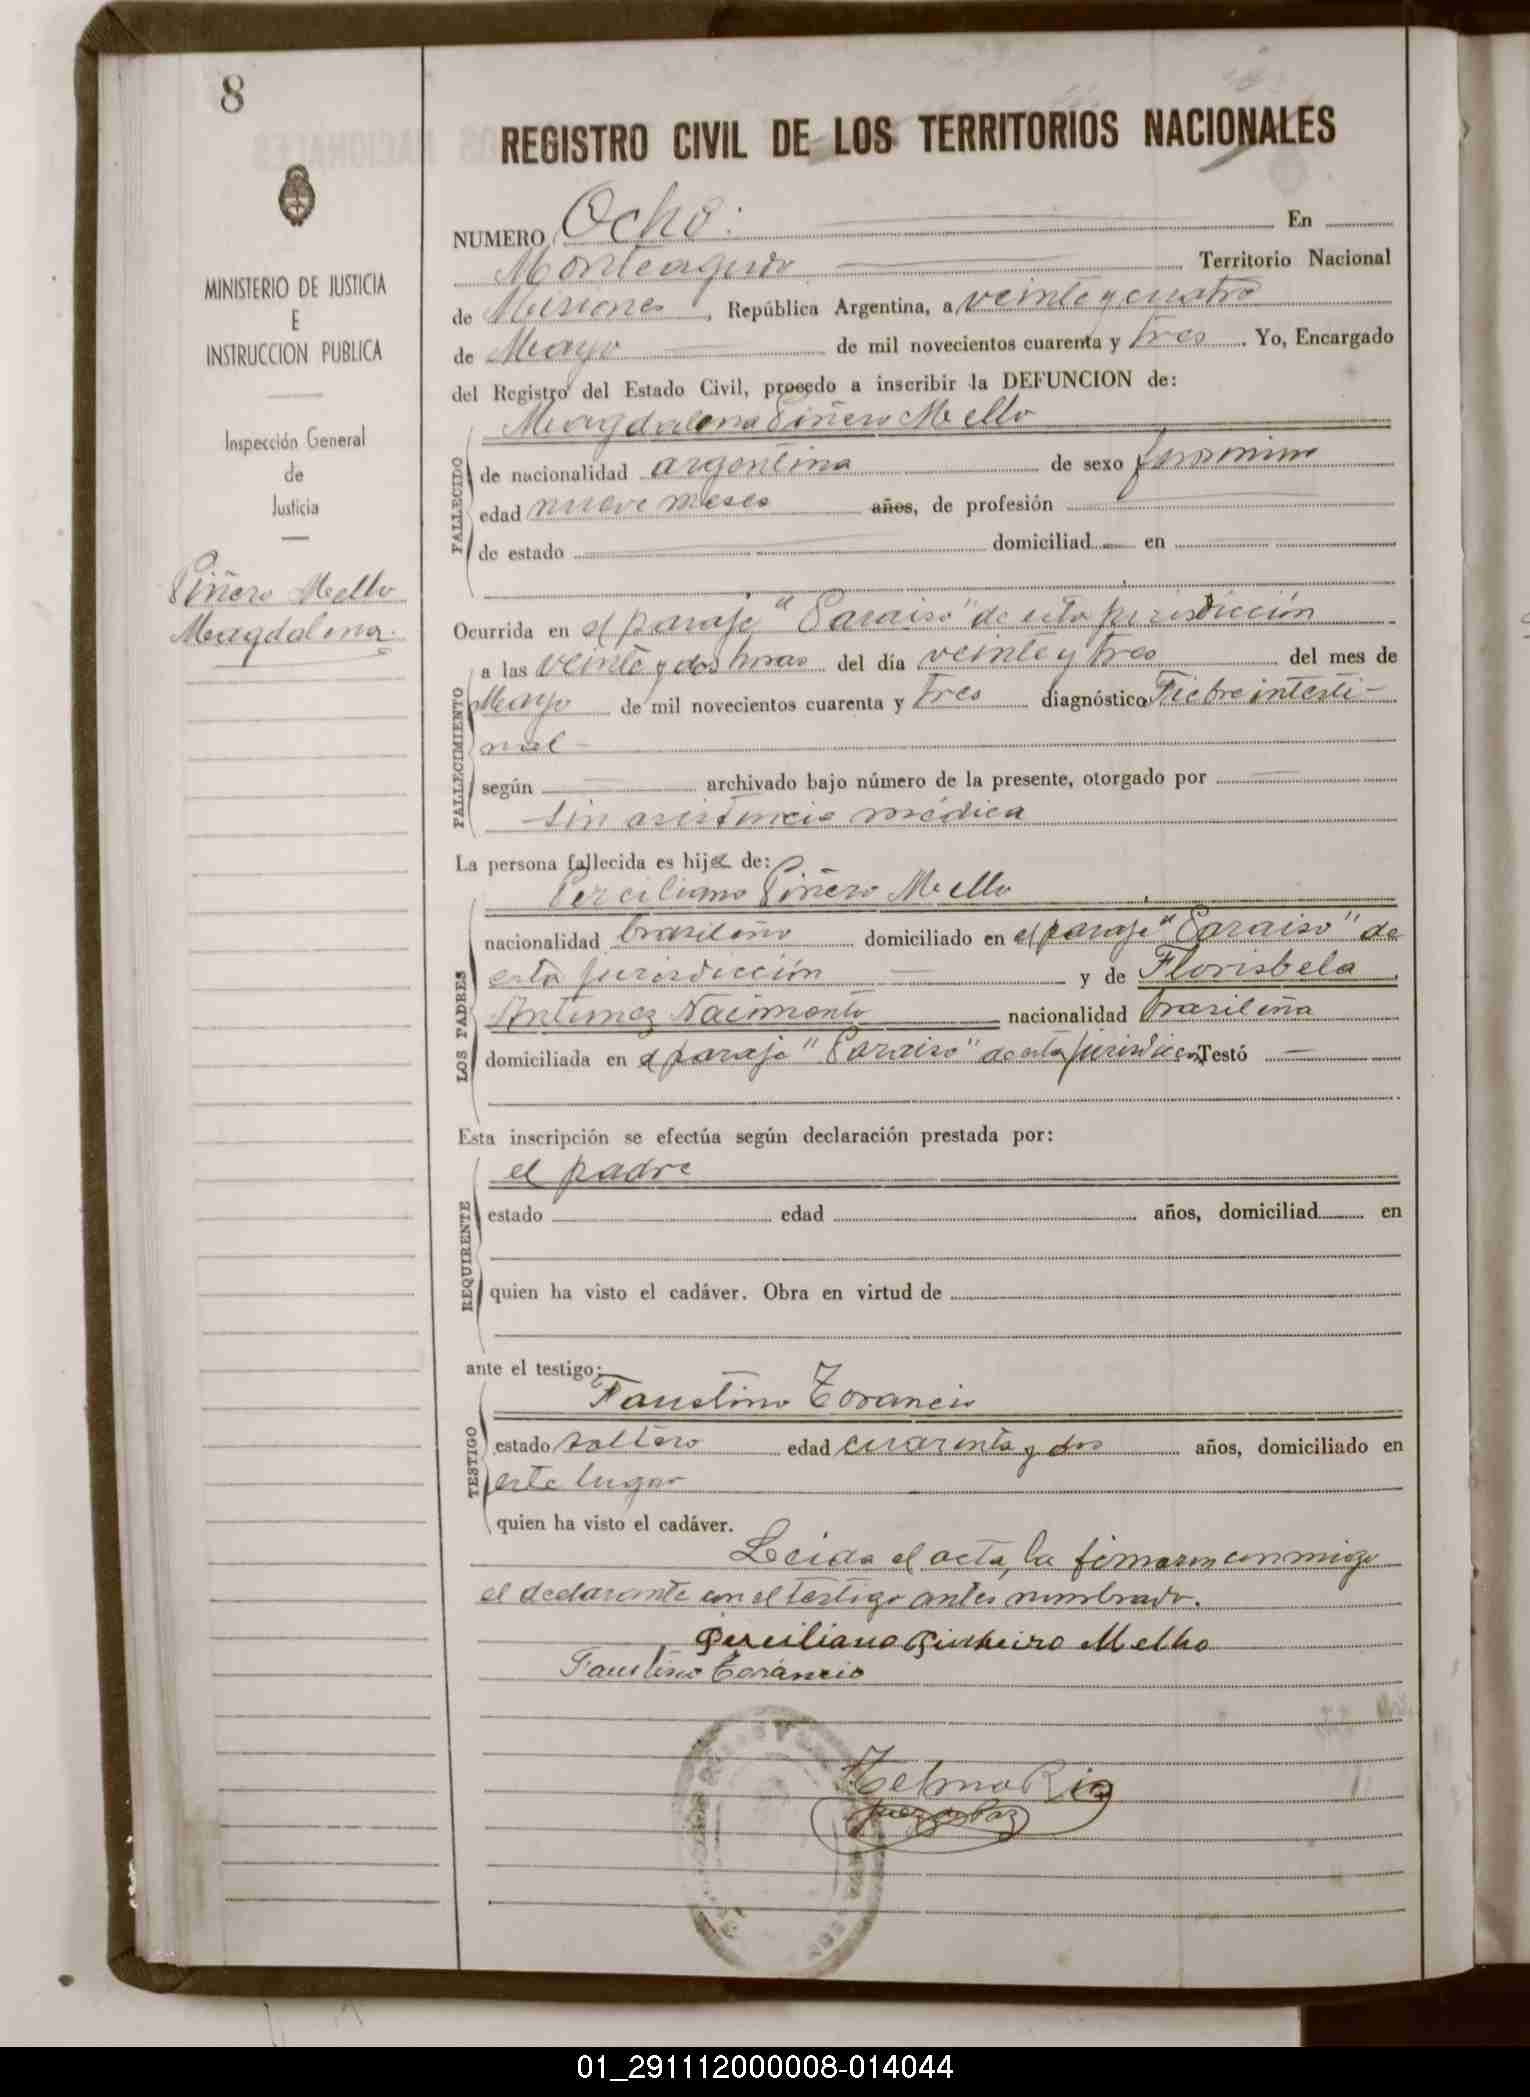 8
MINISTERIO DE JUSTICIA
E
INSTRUCCION PUBLICA
Inspección General
de
Justicia
Piñero Mello
Magdalena.
REGISTRO CIVIL DE LOS TERRITORIOS NACIONALES
NUMERO Ocho: En
Monteagudo Territorio Nacional
de Misiones, República Argentina, a veinte y cuatro
de Mayo de mil novecientos cuarenta y tres. Yo, Encargado
del Registro del Estado Civil, procedo a inscribir la DEFUNCION de:
Magdalena Piñero Mello
FALLECIDO
de nacionalidad argentina de sexo femenino
edad nueve meses años, de profesión
de estado domiciliad en
Ocurrida en el paraje "Paraiso" de esta jurisdicción
FALLECIMIENTO
a las veinte y dos horas del día veinte y tres del mes de
Mayo de mil novecientos cuarenta y tres diagnóstico Fiebre intesti-
nal -
según archivado bajo número de la presente, otorgado por
sin asistencia médica
La persona fallecida es hija de:
LOS PADRES
Perciliano Piñero Mello
nacionalidad brasileño domiciliado en el paraje "Paraiso" de
esta jurisdicción y de Florisbela
Antunez Nacimento nacionalidad brasileña
domiciliada en el paraje "Paraiso" de esta jurisdiccion Testó
Esta inscripción se efectúa según declaración prestada por:
REQUIRENTE
el padre
estado edad años, domiciliad en
quien ha visto el cadáver. Obra en virtud de
ante el testigo:
TESTIGO
Faustino Torancio
estado soltero edad cuarenta y dos años, domiciliado en
este lugar
quien ha visto el cadáver.
Leida el acta, la firmaron conmigo
el declarante con el testigo antes nombrado.
Perciliano Pinheiro Melho
Faustino Torancio
Telmo
Juez de Paz
01_291112000008-014044